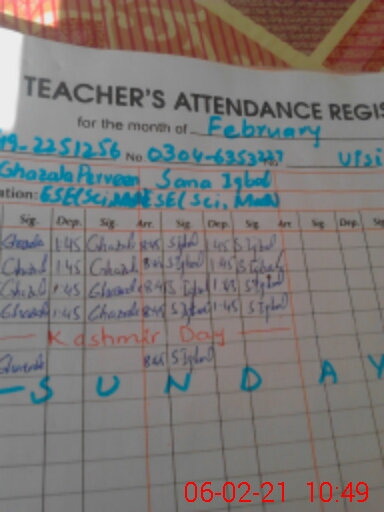 TEACHER'S ATTENDANCE REGIS
for the month of February
19-2251256 No 0304-6353227
Ghazala Perveen Sana Iqbal
ation: ESE(Sci, Math) ESE( Sci, Math)
Sig. Dep. Sig. Arr. Sig. Dep. Sig. Arr. Sig. Dep. Sig.
Ghazala 1:45 Ghazala 8:45 S Iqbal 1:45 S Iqbal
Ghazala 1:45 Ghazala 8:45 S Iqbal 1:45 S Iqbal
Ghazala 1:45 Ghazala 8:45 S Iqbal 1:45 S Iqbal
Ghazala 1:45 Ghazala 8:45 S Iqbal 1:45 S Iqbal
— Kashmir Day —
8:45 S Iqbal
— S U N D A Y
06-02-21 10:49